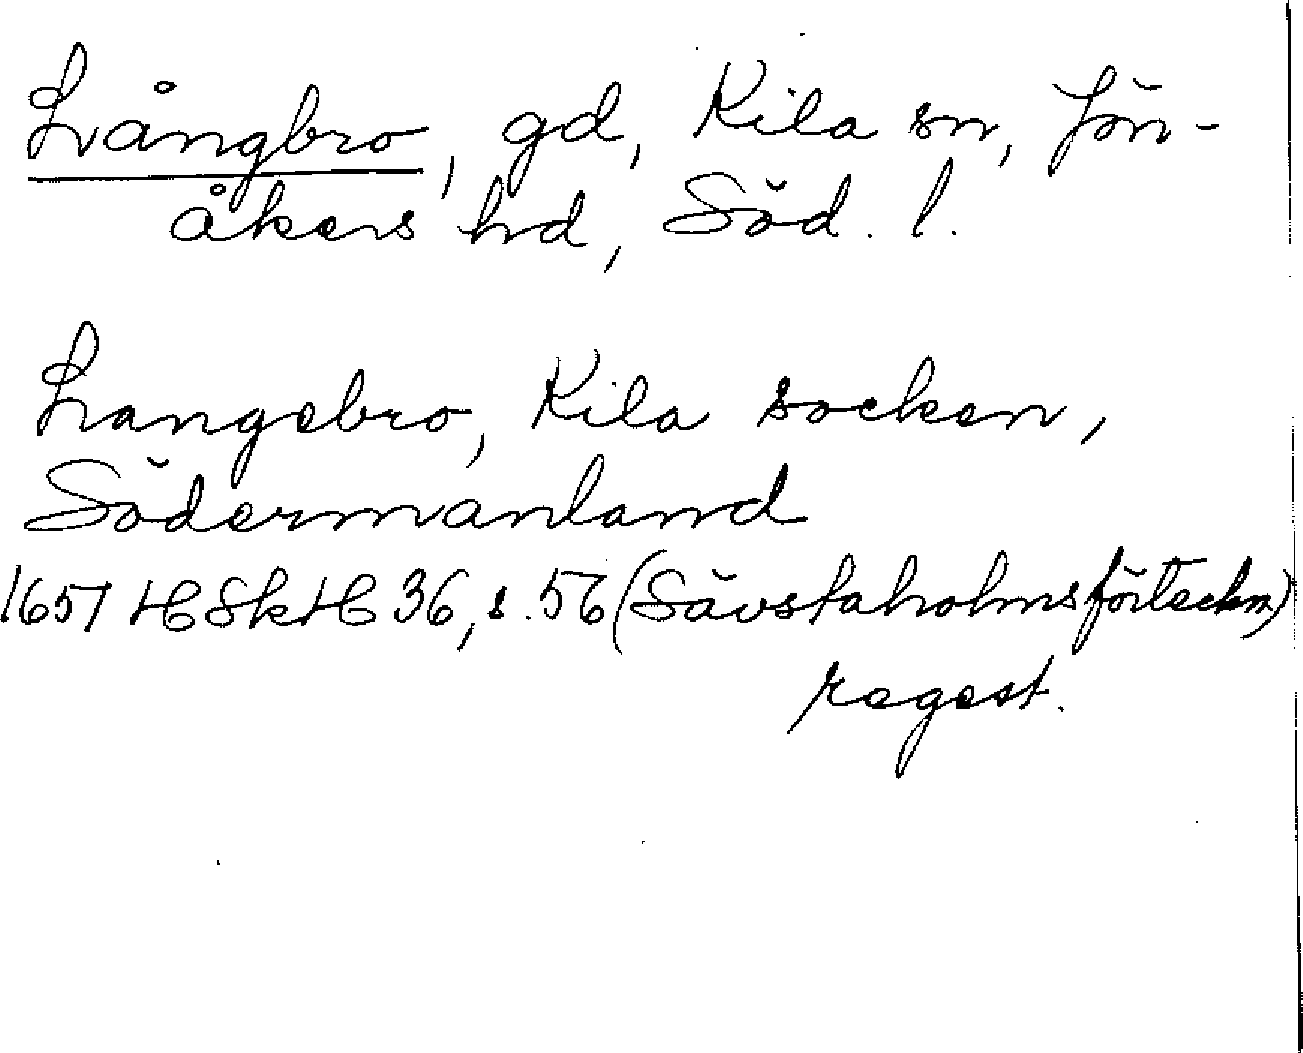 Långbro, gd, Kila sn, Jön-
åkers hd, Söd. l.
Langebro, Kila socken,
Södermanland
1657 HSkH 36, s. 56 (Sävstaholmsförteckn)
regest.